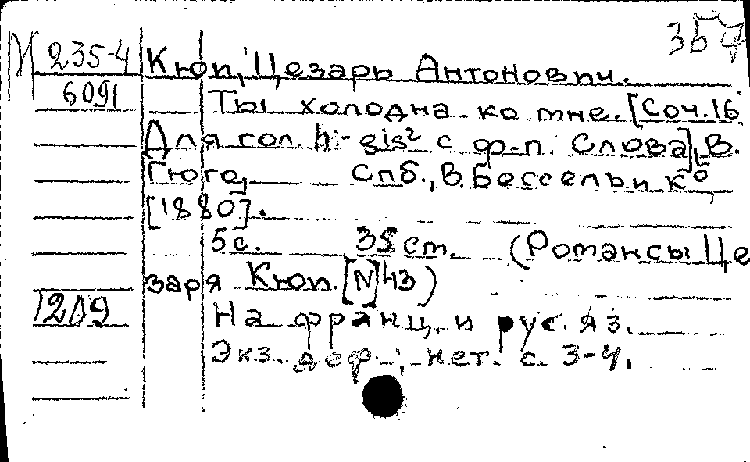 357
М 235-4 Кюи, Цезарь Антонович.
6091 Ты холодна ко мне. [Соч.16
Для гол. h-gis² с ф-п. Слова], В.
Гюго. Спб., В. Бессель и к⁰,
[1880].
5с. 35 ст. (Романсы Це
заря Кюи. [N] 43)
1209 На франц. и рус. яз.
Экз. деф.; нет. с. 3-4.